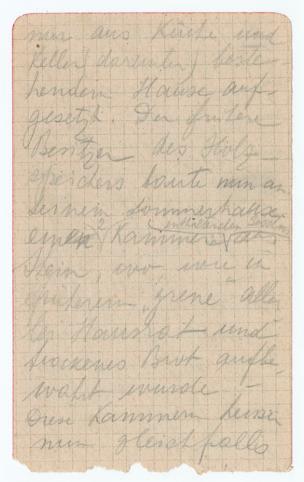 nur aus Küche und
Keller (darunter) beste-
hendem Hause auf-
gesetzt. Der frühere
Besitzer des Holz-
speichers baute nun an
seinem Sommerhause
2 Kammern aus
Stein, wo wie in
"grene" aller-
lei Hausrat und
trockenes Brot aufbe-
wahrt wurde –
Diese Kammern heissen
nun gleichfalls